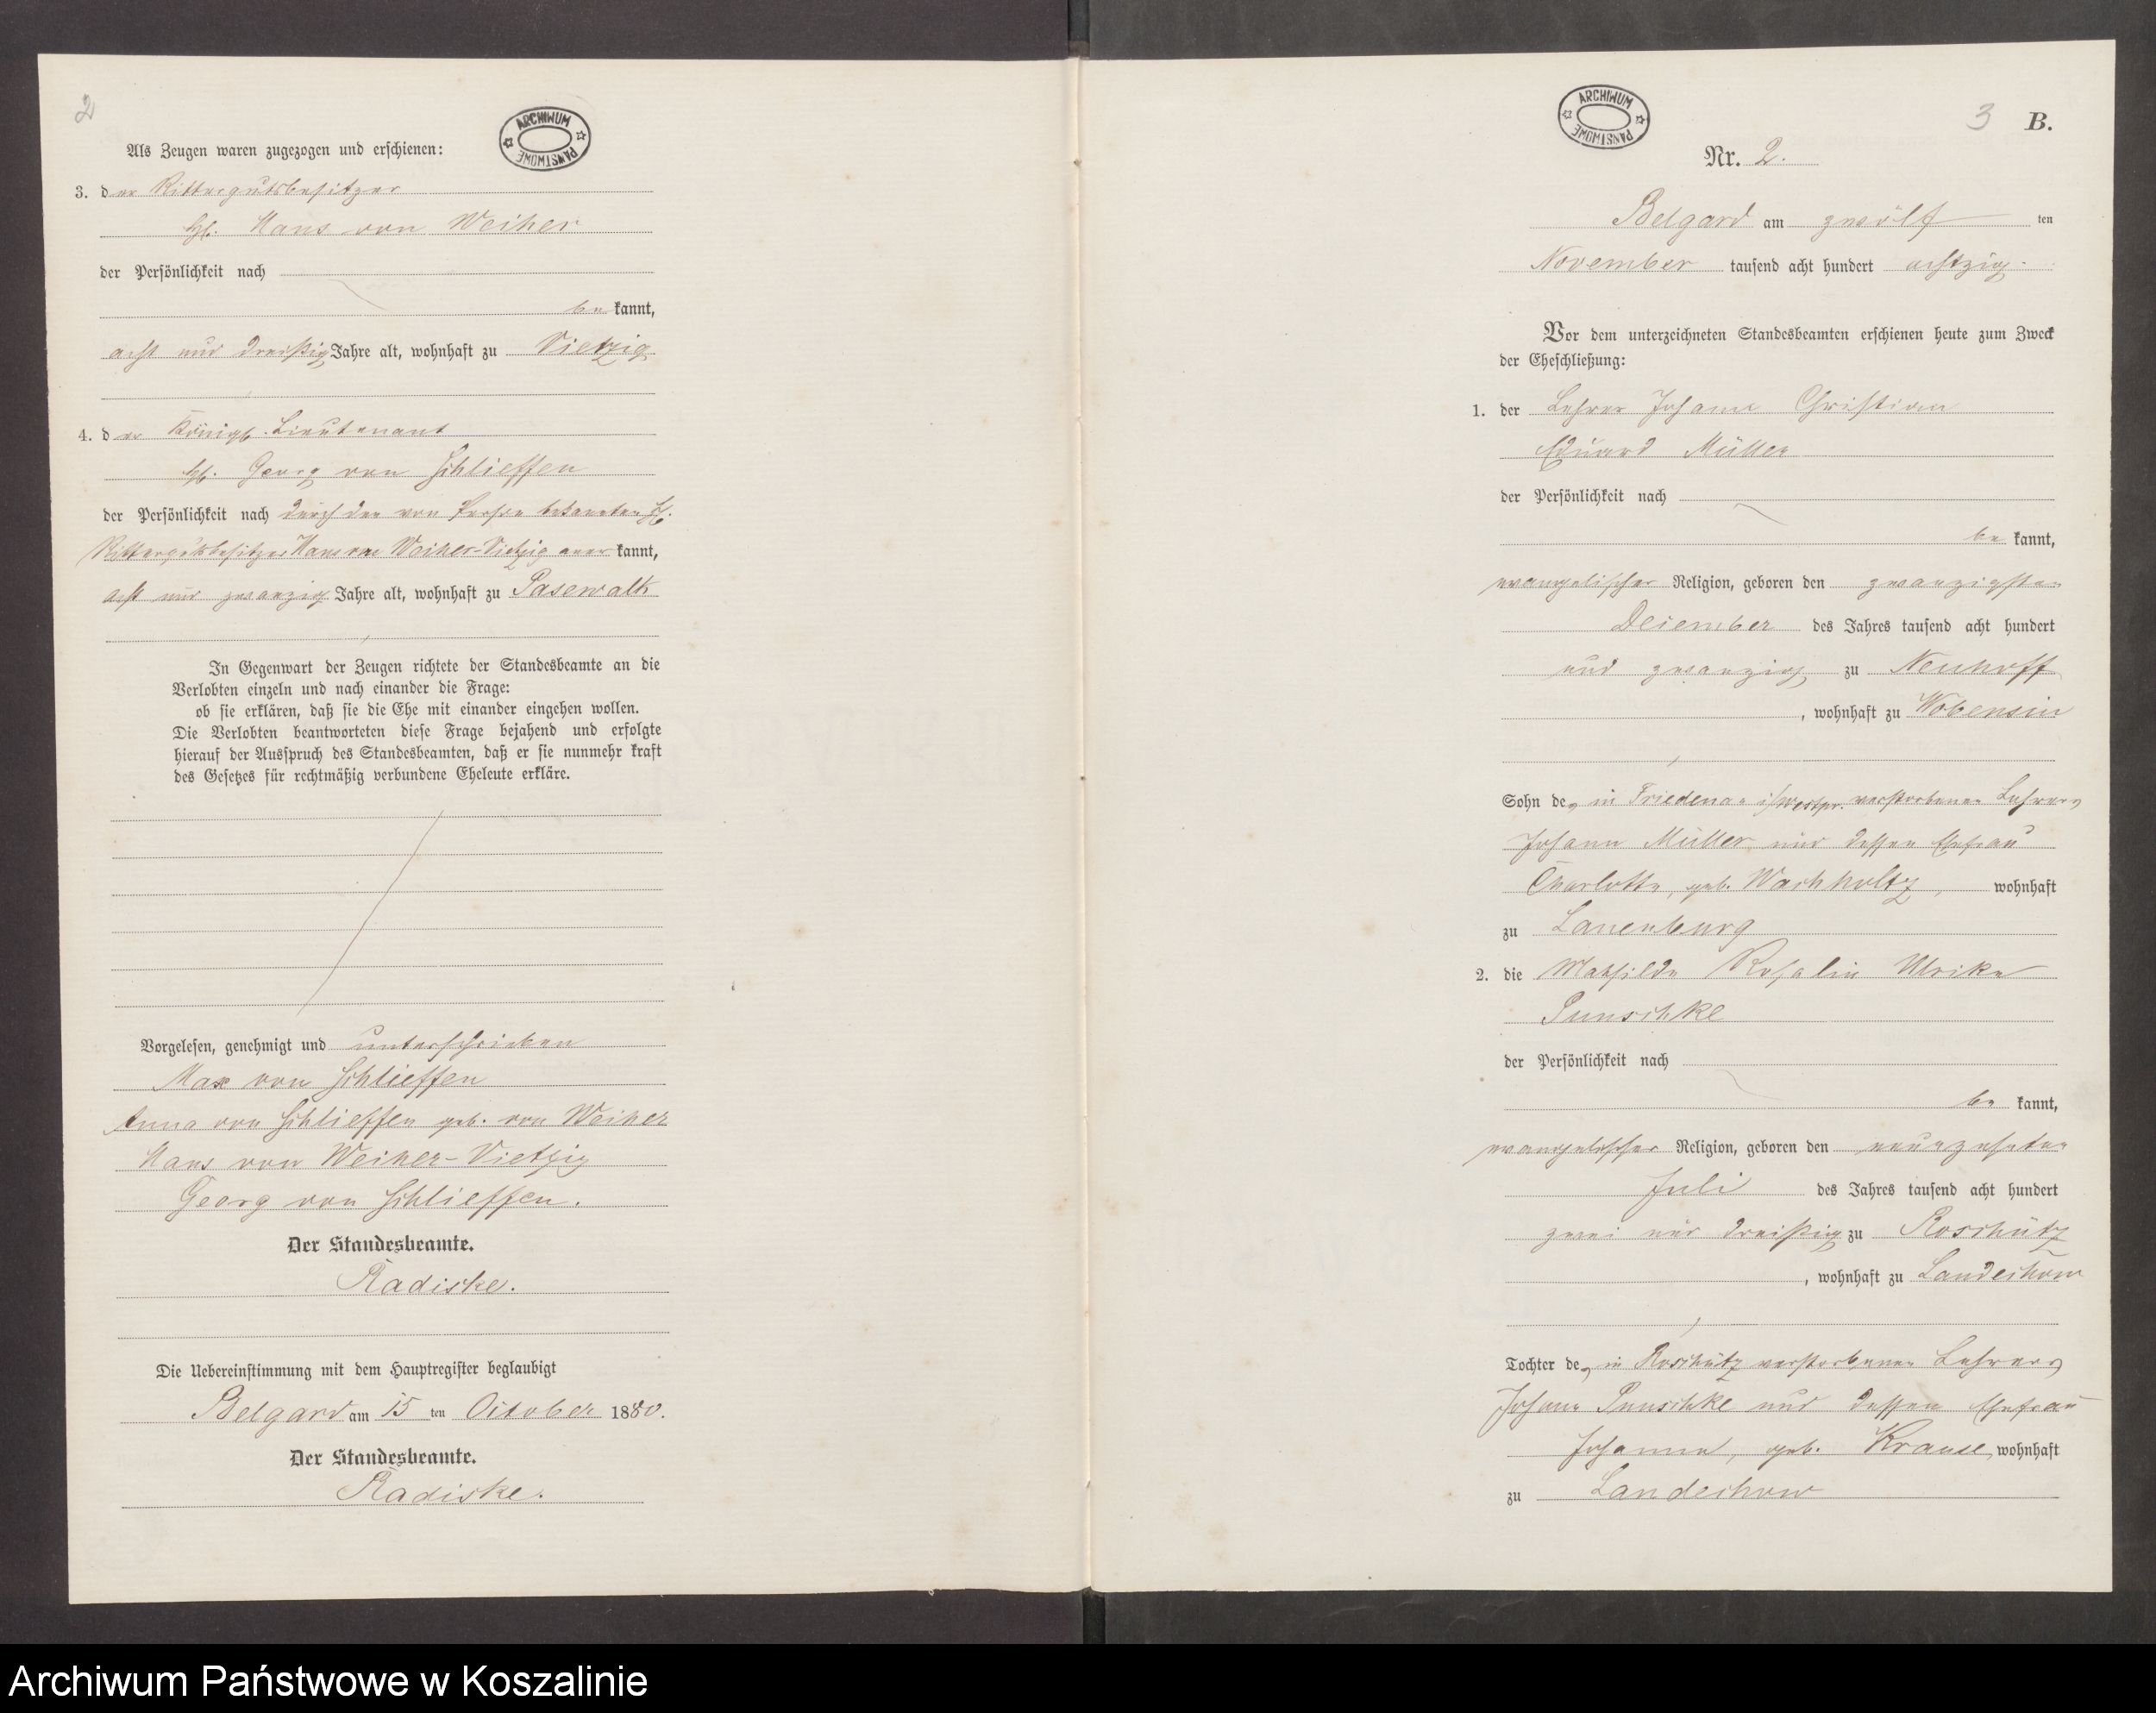 2
ARCHIWUM
PAŃSTWOWE
Als Zeugen waren zugezogen und erschienen:
3. der Rittergutsbesitzer
Hans von Weiher
der Persönlichkeit nach
be kannt,
acht und dreißig Jahre alt, wohnhaft zu Vietzig
4. der Königl. Lieutenant
Georg von Schlieffen
der Persönlichkeit nach durch den von Person bekannten
Rittergutsbesitzer Hans von Weiher-Vietzig aner kannt,
acht und zwanzig Jahre alt, wohnhaft zu Pasewalk
In Gegenwart der Zeugen richtete der Standesbeamte an die
Verlobten einzeln und nach einander die Frage:
ob sie erklären, daß sie die Ehe mit einander eingehen wollen.
Die Verlobten beantworteten diese Frage bejahend und erfolgte
hierauf der Ausspruch des Standesbeamten, daß er sie nunmehr kraft
des Gesetzes für rechtmäßig verbundene Eheleute erkläre.
Vorgelesen, genehmigt und unterschrieben
Max von Schlieffen
Anna von Schlieffen geb. von Weiher
Hans von Weiher-Vietzig
Georg von Schlieffen.
Der Standesbeamte.
Radiske.
Die Uebereinstimmung mit dem Hauptregister beglaubigt
Belgard am 15 ten October 1880.
Der Standesbeamte.
Radiske.
ARCHIWUM
PAŃSTWOWE
3 B.
Nr. 2.
Belgard am zwölf ten
November tausend acht hundert achtzig.
Vor dem unterzeichneten Standesbeamten erschienen heute zum Zweck
der Eheschließung:
1. der Lehrer Johann Christian
Eduard Müller
der Persönlichkeit nach
be kannt,
evangelischer Religion, geboren den zwanzigsten
December des Jahres tausend acht hundert
und zwanzig zu Neuhoff
, wohnhaft zu Wobensin
Sohn des in Friedenau i/Westpr. verstorbenen Lehrers
Johann Müller und dessen Ehefrau
Charlotte, geb. Wachholtz, wohnhaft
zu Lauenburg
2. die Mathilde Rosalie Ulrike
Punschke
der Persönlichkeit nach
be kannt,
evangelischer Religion, geboren den neunzehnten
Juli des Jahres tausend acht hundert
zwei und dreißig zu Roschütz
, wohnhaft zu Landechow
Tochter des in Roschütz verstorbenen Lehrers
Johann Punschke und dessen Ehefrau
Johanna, geb. Krause, wohnhaft
zu Landechow
Archiwum Państwowe w Koszalinie